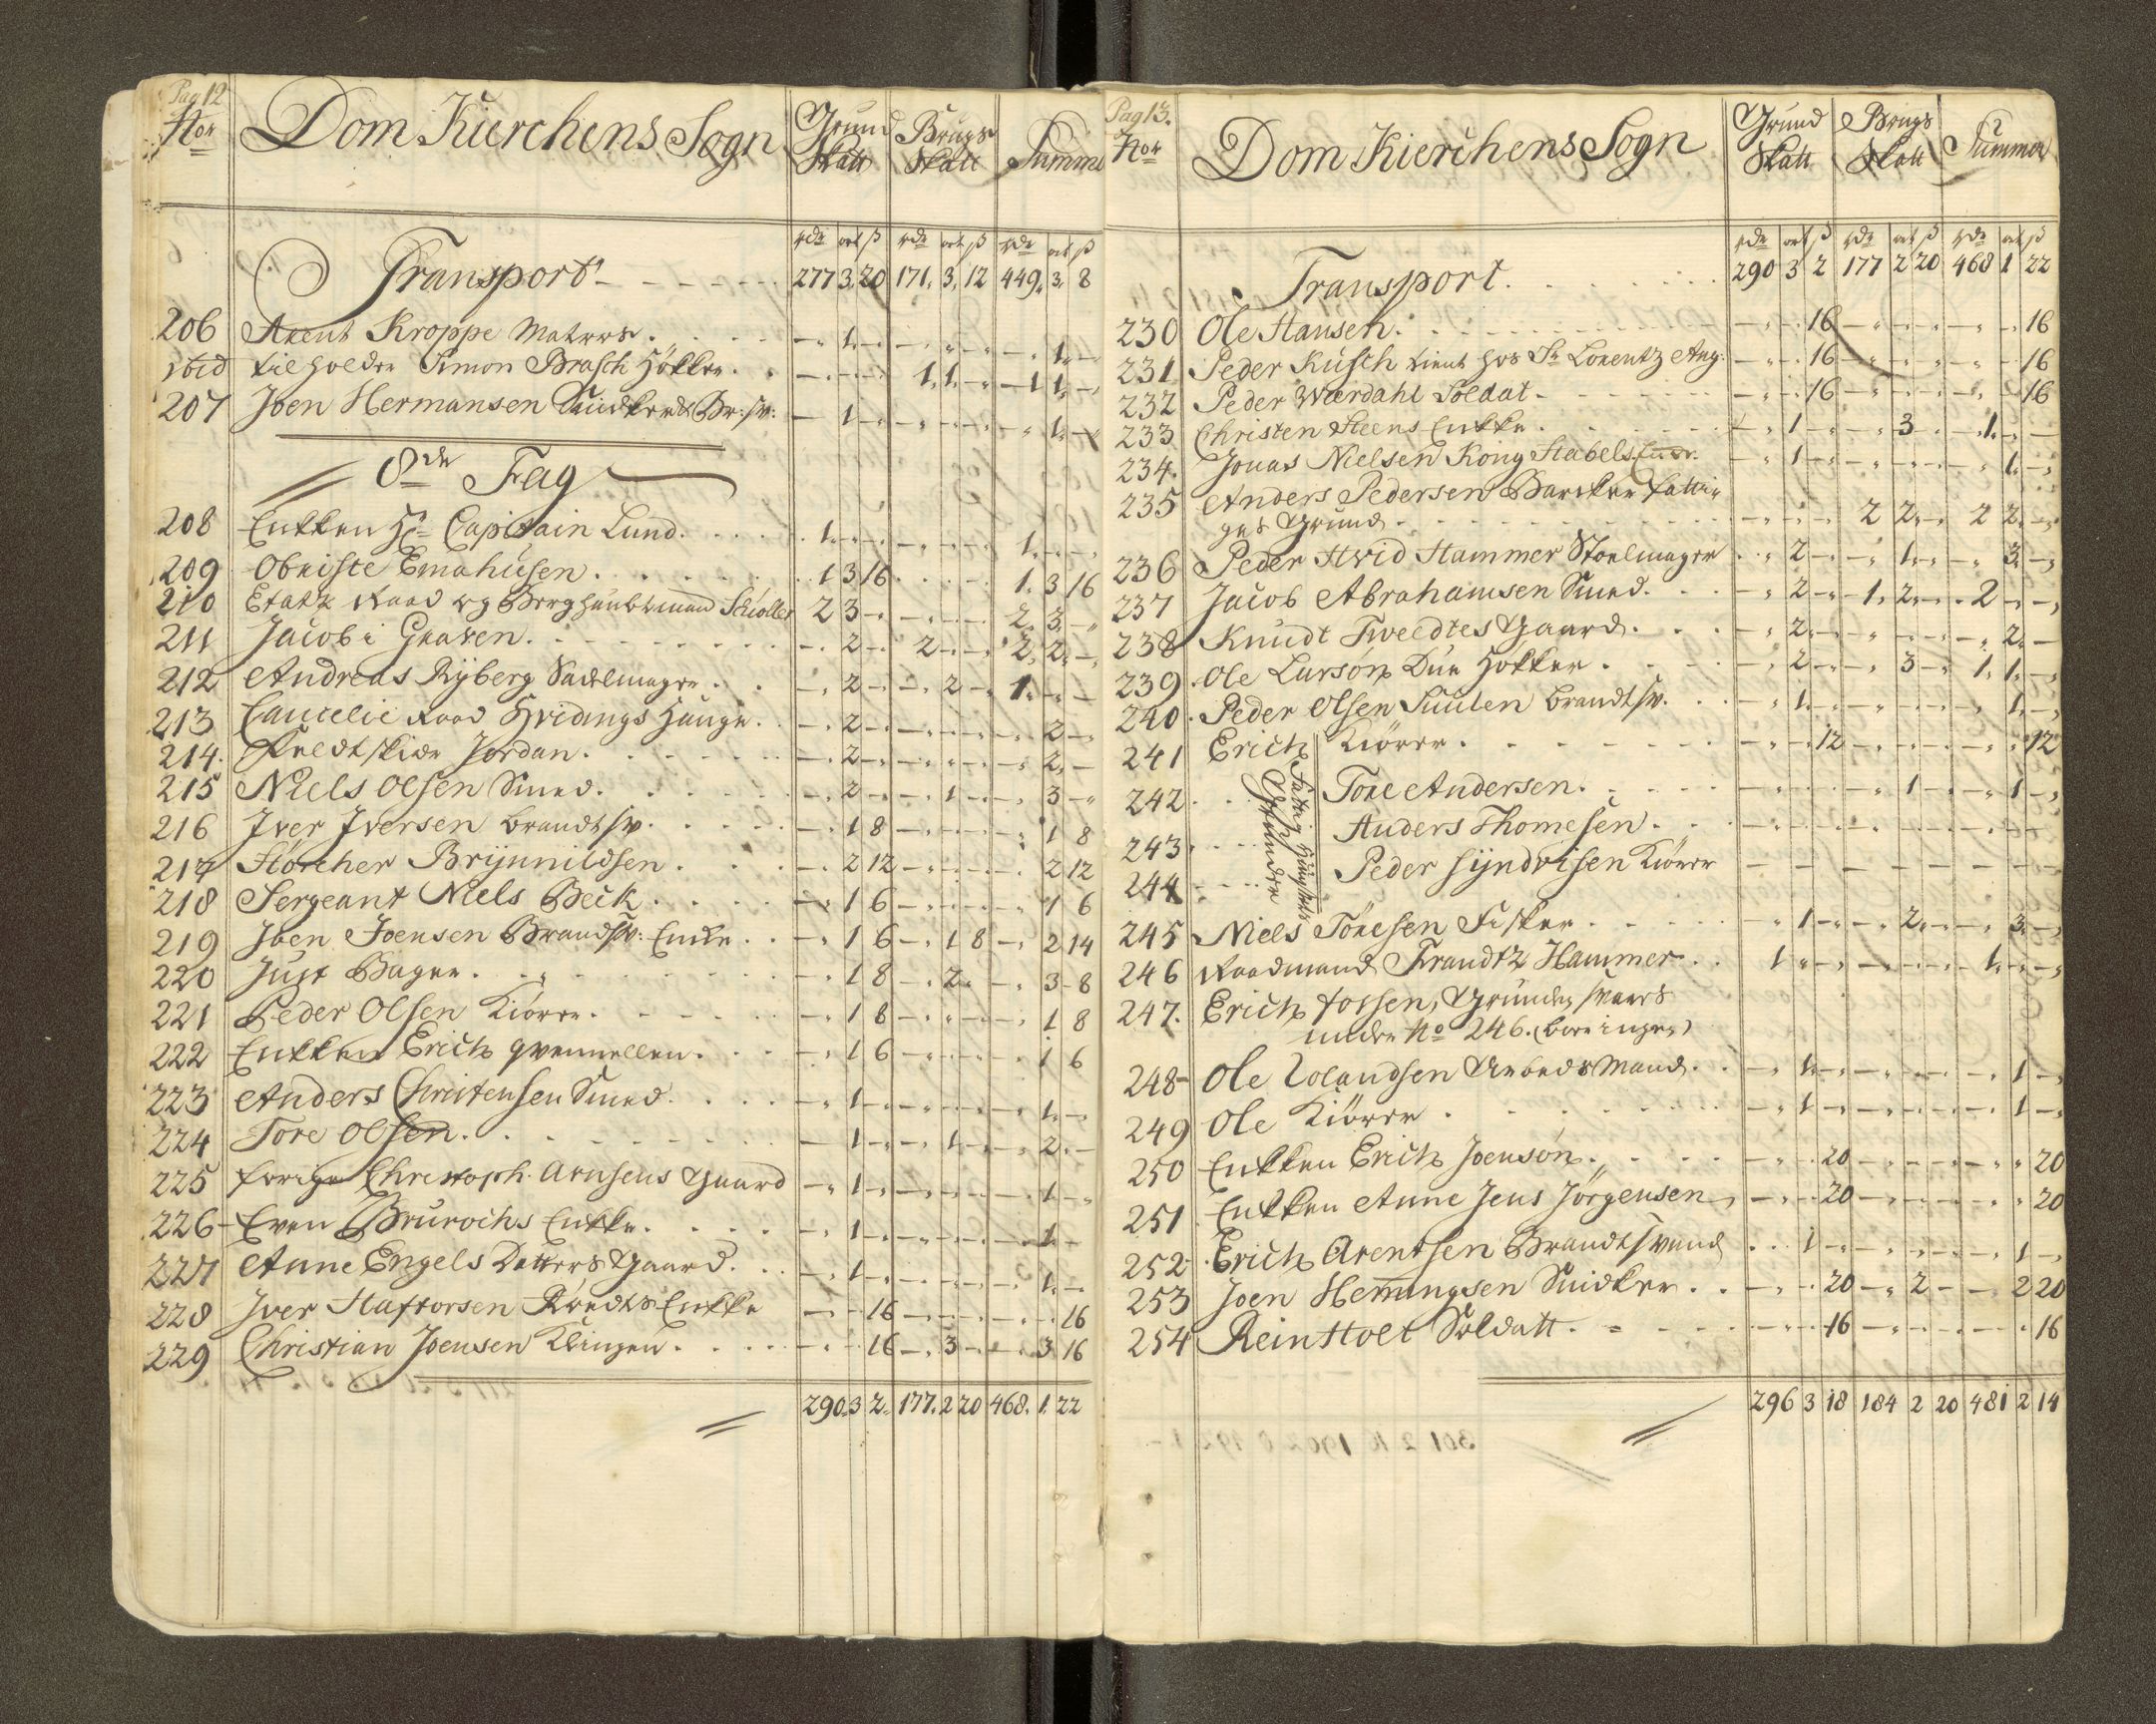 Pag 12
No
Dom Kierchens Sogn
Grund Skatt
Brugs Skatt
Summa
rdr ort ß rdr ort ß rdr ort ß
Transport 277 3 20 171 3 12 449 3 8
206 Arent Kroppe Matros - 1 - - - - - 1 -
ibid tilholder Simon Brasch Høkker - - - 1 1 - 1 1 -
207 Joen Hermansen Snidkers Br: sv: - 1 - - - - - 1 -
8de Fag
208 Enkken Hr Capitain Lund 1 - - - - - 1 - -
209 Obriste Emahusen 1 3 16 - - - 1 3 16
210 Etatz Raad og Berghaubtmand Schiøller 2 3 - - - - 2 3 -
211 Jacob i Graven - 2 - 2 - - 2 2 -
212 Andreas Ryberg Sadelmager - 2 - - 2 - 1 - -
213 Cancelie Raad Hvidings Hauge - 2 - - - - - 2 -
214 Feldtskier Jordan - 2 - - - - - 2 -
215 Niels Olsen Smed - 2 - - 1 - - 3 -
216 Iver Iversen brandtsv. - 1 8 - - - - 1 8
217 Størcher Brynnildsen - 2 12 - - - - 2 12
218 Sergeant Niels Beck - 1 6 - - - - 1 6
219 Joen Joensen Brandsv: Enke - 1 6 - 1 8 - 2 14
220 Just Bager - 1 8 - 2 - - 3 8
221 Peder Olsen Kiører - 1 8 - - - - 1 8
222 Enkken Erich qvernellen - 1 6 - - - - 1 6
223 Anders Christensen Smed - 1 - - - - - 1 -
224 Tore Olsen - 1 - - 1 - - 2 -
225 forige Christoph. Arnsens Gaard - 1 - - - - - 1 -
226 Even Brurochs Enkke - 1 - - - - - 1 -
227 Anne Engels Datters Gaard - 1 - - - - - 1 -
228 Iver Haftorsen Enkke - - 16 - - - - - 16
229 Christian Joensen Klingen - - 16 - 3 - - 3 16
290 3 2 177 2 20 468 1 22
Pag 13.
No
Dom Kierchens Sogn
Grund Skatt
Brugs Skatt
Summa
rdr ort ß rdr ort ß rdr ort ß
Transport 290 3 2 177 2 20 468 1 22
230 Ole Hansen - - 16 - - - - - 16
231 Peder Kusch tient hos Sr Lorentz Ang: - - 16 - - - - - 16
232 Peder Wærdahl Soldat - - 16 - - - - - 16
233 Christen Steens Enkke - 1 - - 3 - 1 - -
234. Jonas Nielsen Kongstabels - 1 - - - - - 1 -
235 Anders Pedersen Barcker fatti-
ges Grund - - - 2 2 - 2 2 -
236 Peder Hvid Hammer Stoelmager - 2 - - 1 - - 3 -
237 Jacob Abrahamsen Smed - 2 - 1 2 - 2 - -
238 Knudt Tweedtes Gaard - 2 - - - - - 2 -
239 Ole Larsøn Due Høkker - 2 - - 3 - 1 1 -
240 Peder Olsen Suulen brandtsv. - 1 - - - - - 1 -
241 Erich Kiører - - 12 - - - - - 12
242 Tore Andersen - - - - 1 - - 1 -
243 Anders Thomesen - - - - - - - - -
244 Peder Syndvisen Kiører - - - - - - - - -
245 Niels Tøresen Fisker - 1 - - 2 - - 3 -
246 Raadmand Frandtz Hammer 1 - - - - - 1 - -
247. Erich Fossen, Grunden svares
under No 246. (boer ingen)
248 Ole Rolandsen Arbeds Mand - 1 - - - - - 1 -
249 Ole Kiører - 1 - - - - - 1 -
250 Enkken Erich Joensøn - - 20 - - - - - 20
251 Enkken Anne Jens Jørgensen - - 20 - - - - - 20
252 Erich Arentsen Brandtsvend - 1 - - - - - 1 -
253 Joen Hemmingsen Snidker - - 20 - 2 - - 2 20
254 Rein Holt Soldatt - - 16 - - - - - 16
296 3 18 184 2 20 481 2 14